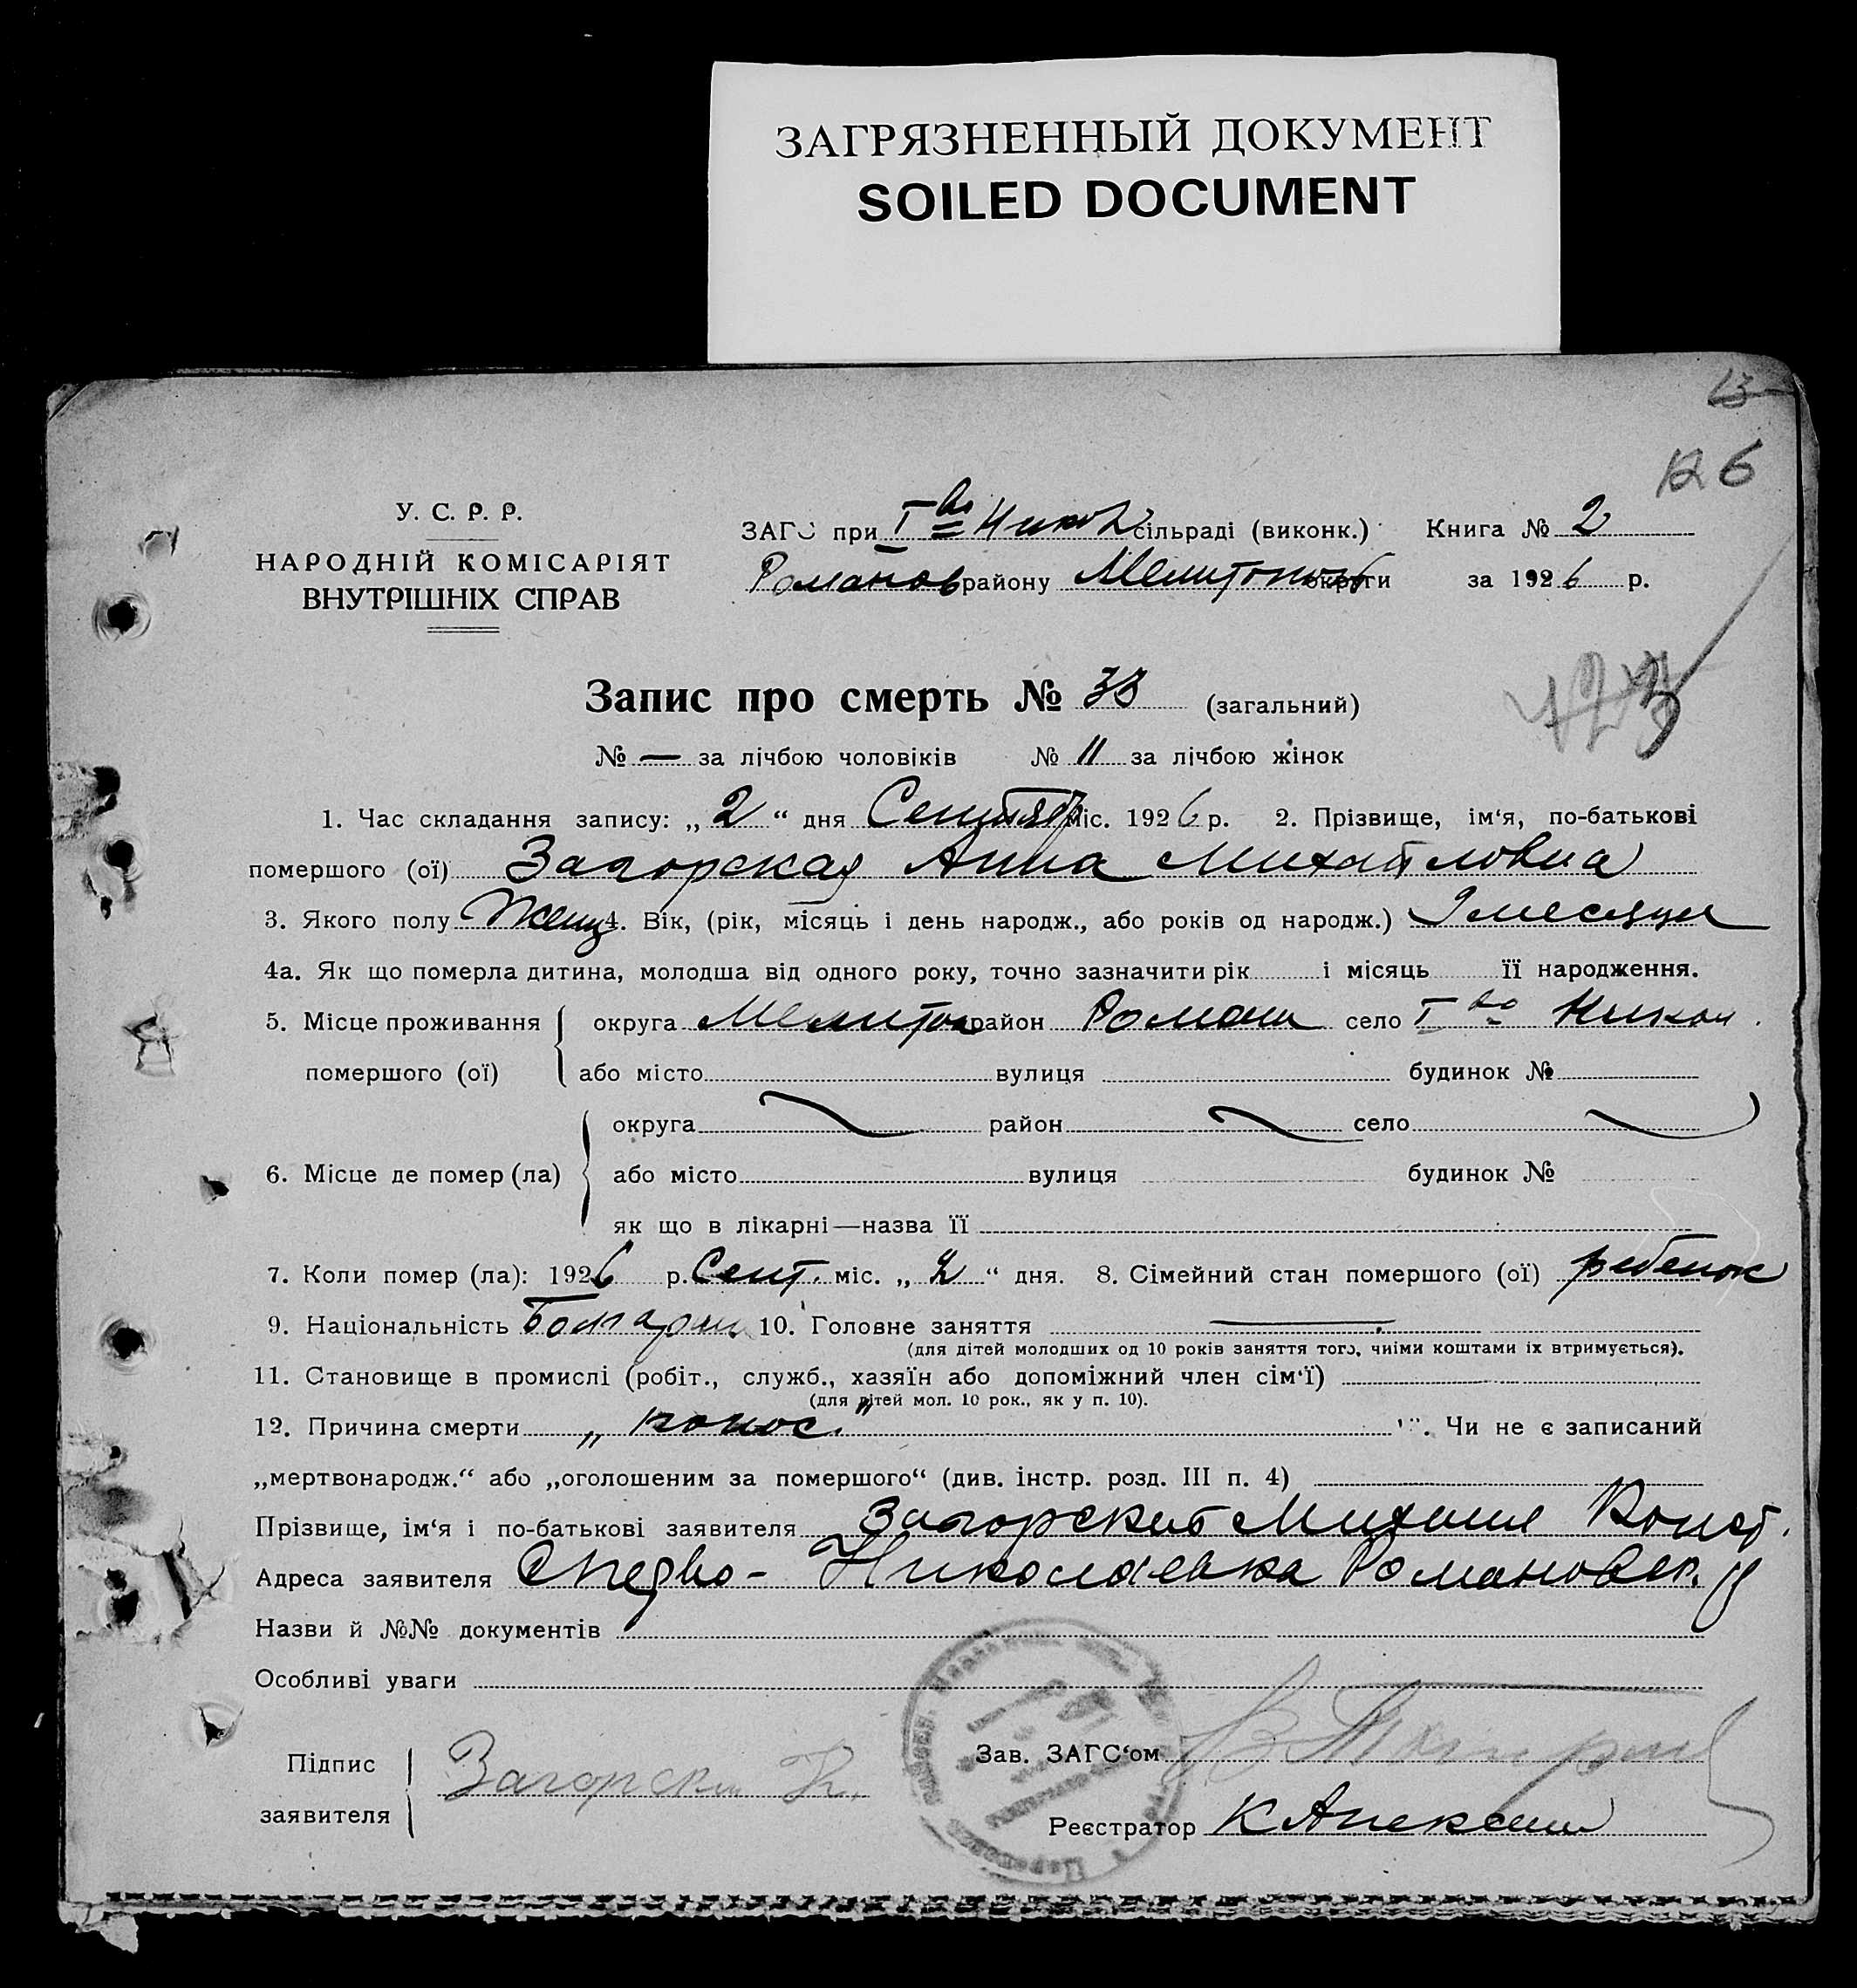 ЗАГРЯЗНЕННЫЙ ДОКУМЕНТ
SOILED DOCUMENT
13
126
У. С. Р. Р.
НАРОДНІЙ КОМІСАРІЯТ
ВНУТРІШНІХ СПРАВ
ЗАГС при І во Никол сільраді (виконк.) Книга № 2
Романов району Мелитополь округи за 1926 р.
Запис про смерть № 33 (загальний)
123
№ — за лічбою чоловіків № 11 за лічбою жінок
1. Час складання запису: „2“ дня Сентябр міс. 1926 р. 2. Прізвище, ім‘я, по-батькові
помершого (ої) Загорская Анна Михайловна
3. Якого полу Женщ 4. Вік, (рік, місяць і день народж., або років од народж.) 9 месяцы
4а. Як що померла дитина, молодша від одного року, точно зазначити рік і місяць її народження.
5. Місце проживання округа Мелитоп район Роман село І во Никол.
помершого (ої) або місто вулиця будинок №
округа район село
6. Місце де помер (ла) або місто вулиця будинок №
як що в лікарні—назва її
7. Коли помер (ла): 1926 р. Сент. міс. „2“ дня. 8. Сімейний стан помершого (ої) ребенок
9. Національність Болгарин 10. Головне заняття —
(для дітей молодших од 10 років заняття того, чиїми коштами їх втримується).
11. Становище в промислі (робіт., служб., хазяїн або допоміжний член сім‘ї)
(для дітей мол. 10 рок., як у п. 10).
12. Причина смерти „понос.“ Чи не є записаний
„мертвонародж.“ або „оголошеним за помершого“ (див. інстр. розд. III п. 4)
Прізвище, ім‘я і по-батькові заявителя Загорский Михаил Конст.
Адреса заявителя Перво-Николаевка Романовск.
Назви й №№ документів
Особливі уваги
Підпис
заявителя
Загорски
Зав. ЗАГС‘ом
Реєстратор К Алексеи